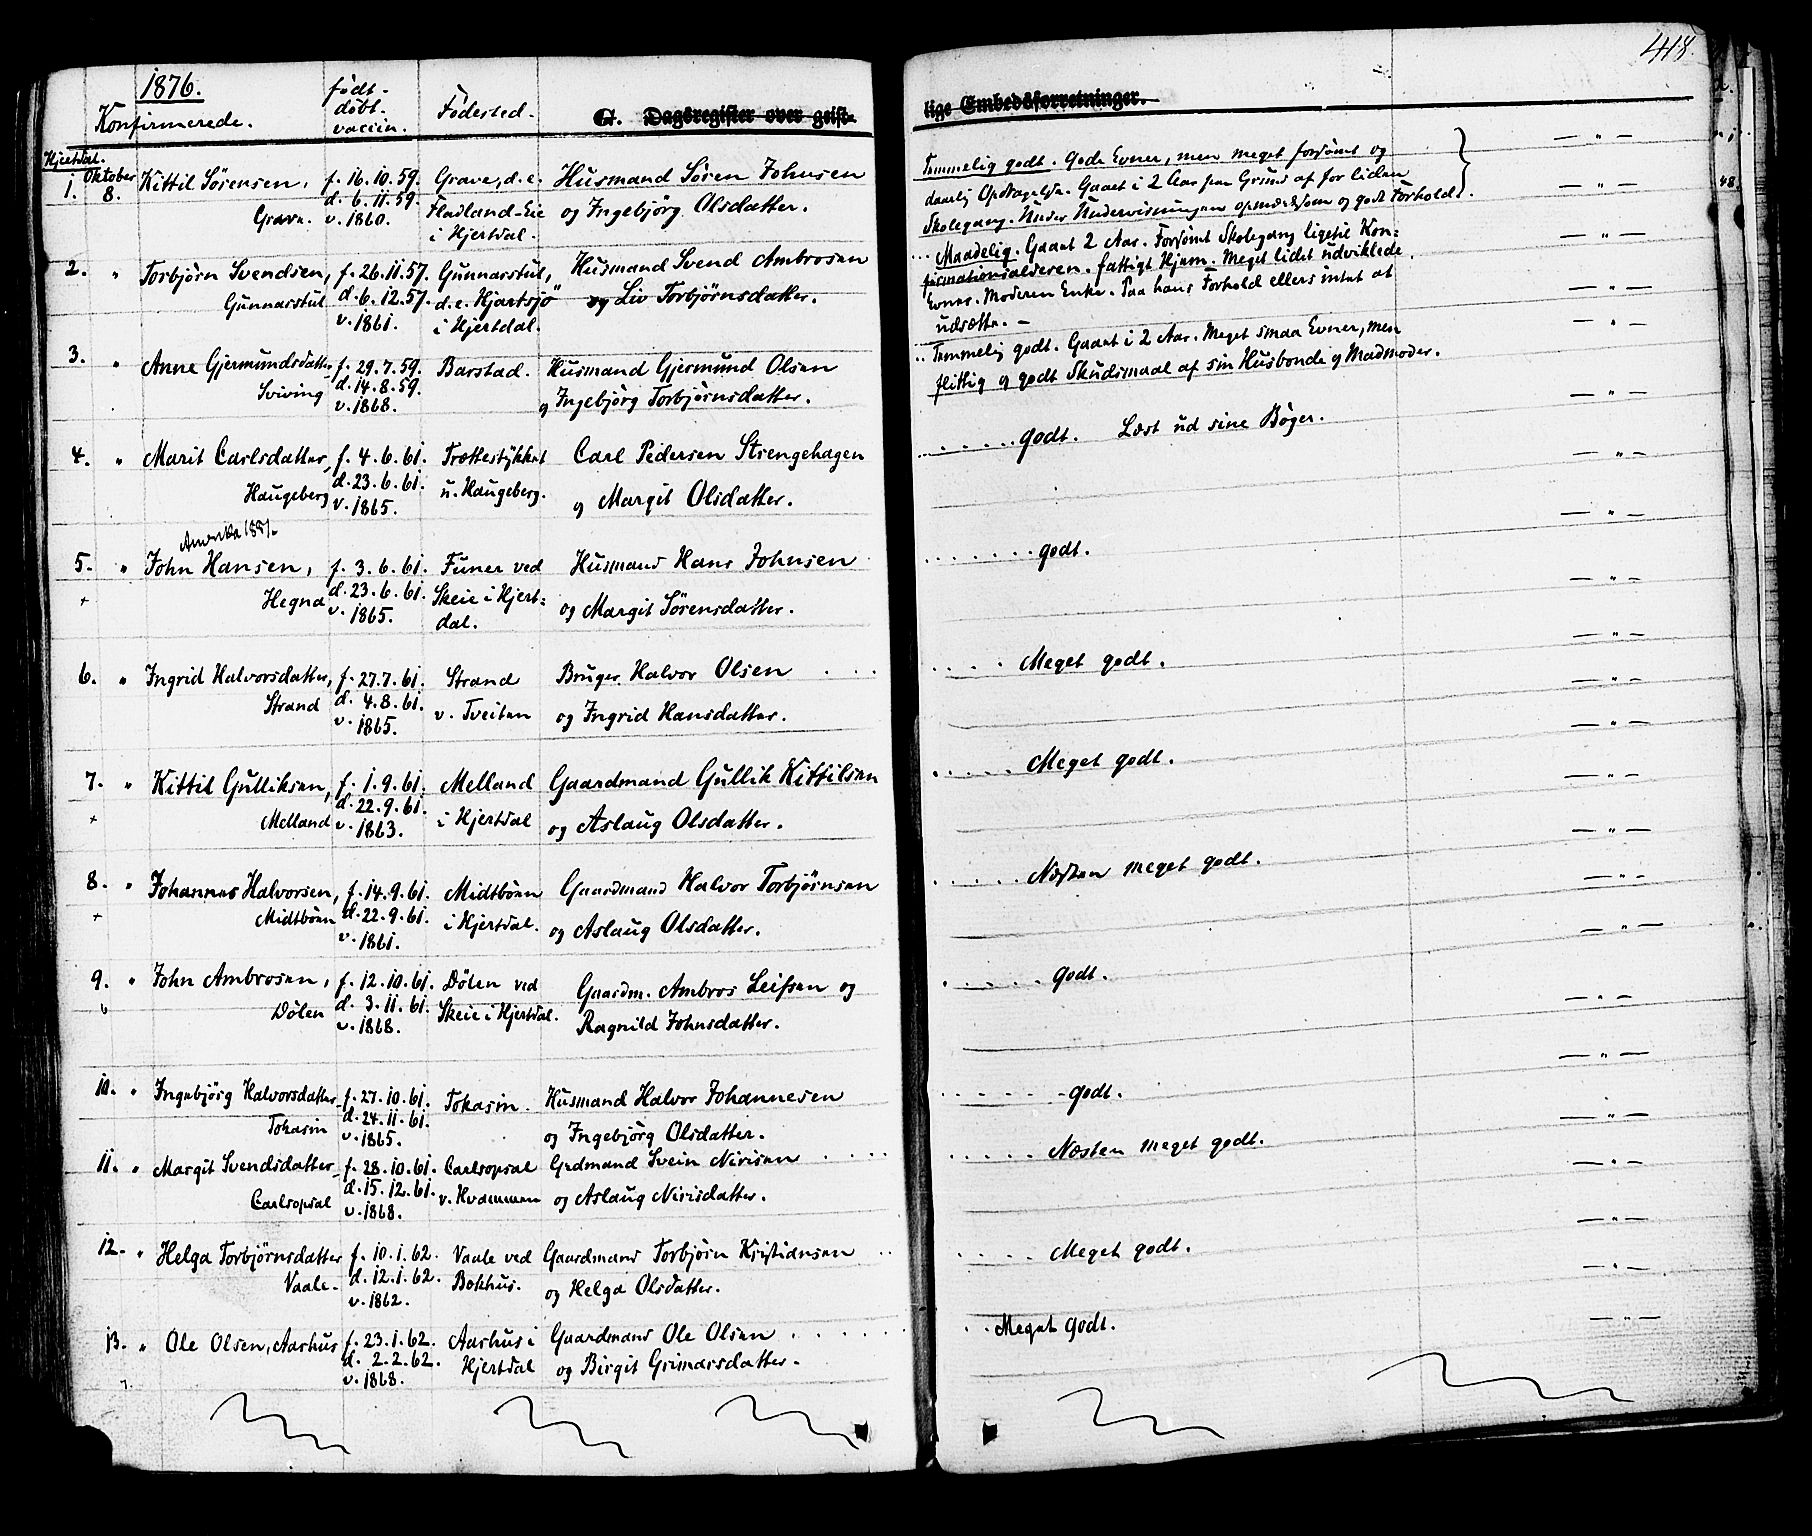 1876.
Konfirmerede.
født-
døbt.
vaccin.
Fødested.
G. Dagsregister over geist-
Hjertdal.
1. Oktober 8. Kittil Sørensen, f. 16.10.59. Grave, d.e. Husmand Søren Johnsen
Grave. d. 6.11.59. Fladland-Eie og Ingebjørg Olsdatter.
v. 1860. i Hjertdal.
2. " Torbjørn Svendsen, f. 26.11.57. Gunnarstul, Husmand Svend Ambrosen
Gunnarstul d. 6.12.57. d.e. Hjartsjö og Liv Torbjørnsdatter.
v. 1861. i Hjertdal.
3. " Anne Gjermundsdatter f. 29.7.59. Barstad. Husmand Gjermund Olsen
Sviving d. 14.8.59. og Ingebjörg Torbjørnsdatter.
v. 1868.
4. " Marit Carlsdatter, f. 4.6.61. Trættestykket Carl Pedersen Strengehagen
Haugeberg d. 23.6.61. u. Haugeberg. og Margit Olsdatter.
v. 1865.
Amerika 1881.
5. " John Hansen, f. 3.6.61. Funer ved Husmand Hans Johnsen
+ Hegna d. 23.6.61. Skeie i Hjert= og Margit Sørensdatter.
v. 1865. dal.
6. " Ingrid Halvorsdatter, f. 27.7.61. Strand Bruger Halvor Olsen . . .
Strand d. 4.8.61. v. Tveiten og Ingrid Hansdatter.
v. 1865.
7. " Kittil Gulliksen, f. 1.9.61. Melland Gaardmand Gullik Kittilsen
+ Melland d. 22.9.61. i Hjertdal og Aslaug Olsdatter.
v. 1863.
8. " Johannes Halvorsen, f. 14.9.61. Midtböen Gaardmand Halvor Torbjørnsen
+ Midtböen d. 22.9.61. i Hjertdal. og Aslaug Olsdatter.
v. 1861.
9. " John Ambrosen, f. 12.10.61. Dölen ved Gaardm. Ambros Leifsen og
Dølen d. 3.11.61. Skeie i Hjertdal. Ragnild Johnsdatter.
v. 1868.
10. " Ingebjörg Halvorsdatter f. 27.10.61. Tokasin. Husmand Halvor Johannesen
Tokasin d. 24.11.61. og Ingebjörg Olsdatter.
v. 1865.
11. " Margit Svendsdatter f. 28.10.61. Carlsopsal Grdmand Svein Nirisen . . . .
Carlsopsal d. 15.12.61. v. Hvammen og Aslaug Nirisdatter.
v. 1868.
12. " Helga Torbjörnsdatter f. 10.1.62. Vaale ved Gaardmand Torbjørn Kristiansen . .
Vaale. d. 12.1.62. Bekhus. og Helga Olsdatter.
v. 1862.
13. " Ole Olsen, Aarhus f. 23.1.62. Aarhus i Gaardmand Ole Olsen . . . . . .
d. 2.2.62. Hjertdal og Birgit Grimarsdatter.
v. 1868.
418.
lige Embedsforretninger.
Temmelig godt. Gode Evner, men meget forsømt og
daarlig Opdragelse. Gaaet i 2 Aar paa Grund af for liden
Skolegang. Under Undervisningen opmærksom og godt Forhold.
Maadelig. Gaaet 2 Aar. Forsømt Skolegang ligetil Kon=
firmationsalderen. fattigt Hjem. Meget lidet udviklede
Evner. Moderen Enke. Paa hans Forhold ellers intet at
udsætte. —
Temmelig godt. Gaaet i 2 Aar. Meget smaa Evner, men
flittig og godt Skudsmaal af sin Husbonde og Madmoder.
. . . . . godt. Læst ud sine Bøger.
. . . . . . . godt.
. . . . Meget godt.
. . . . . Meget godt.
. . . . . Næsten meget godt.
. . . . . godt.
. . . . . . -godt.
. . . . . Næsten meget godt.
. . . . Meget godt.
. . Meget godt.